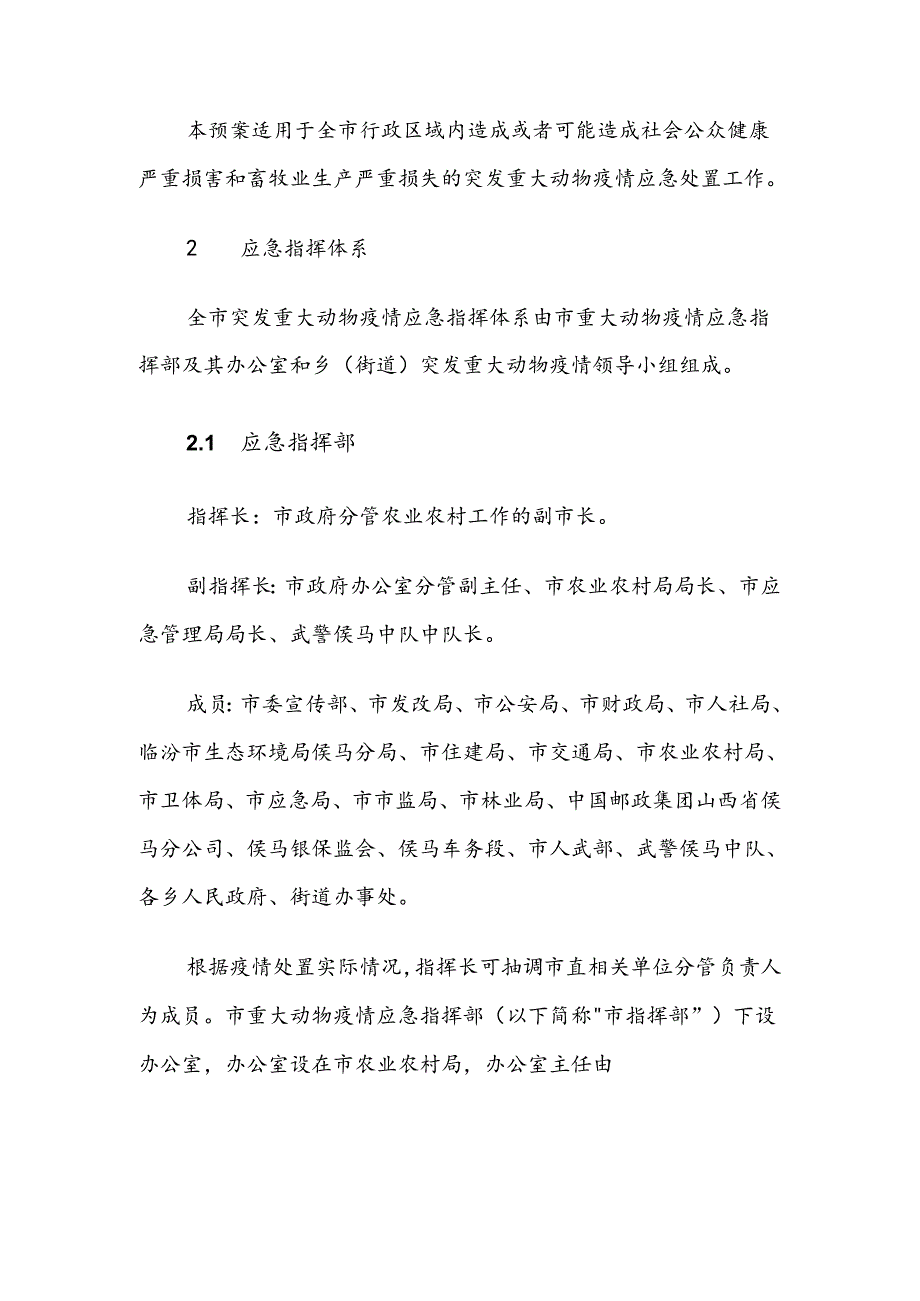 本预案适用于全市行政区域内造成或者可能造成社会公众健康
严重损害和畜牧业生产严重损失的突发重大动物疫情应急处置工作。
2 应急指挥体系
全市突发重大动物疫情应急指挥体系由市重大动物疫情应急指
挥部及其办公室和乡（街道）突发重大动物疫情领导小组组成。
2.1 应急指挥部
指挥长：市政府分管农业农村工作的副市长。
副指挥长：市政府办公室分管副主任、市农业农村局局长、市应
急管理局局长、武警侯马中队中队长。
成员：市委宣传部、市发改局、市公安局、市财政局、市人社局、
临汾市生态环境局侯马分局、市住建局、市交通局、市农业农村局、
市卫体局、市应急局、市市监局、市林业局、中国邮政集团山西省侯
马分公司、侯马银保监会、侯马车务段、市人武部、武警侯马中队、
各乡人民政府、街道办事处。
根据疫情处置实际情况，指挥长可抽调市直相关单位分管负责人
为成员。市重大动物疫情应急指挥部（以下简称"市指挥部”）下设
办公室，办公室设在市农业农村局，办公室主任由